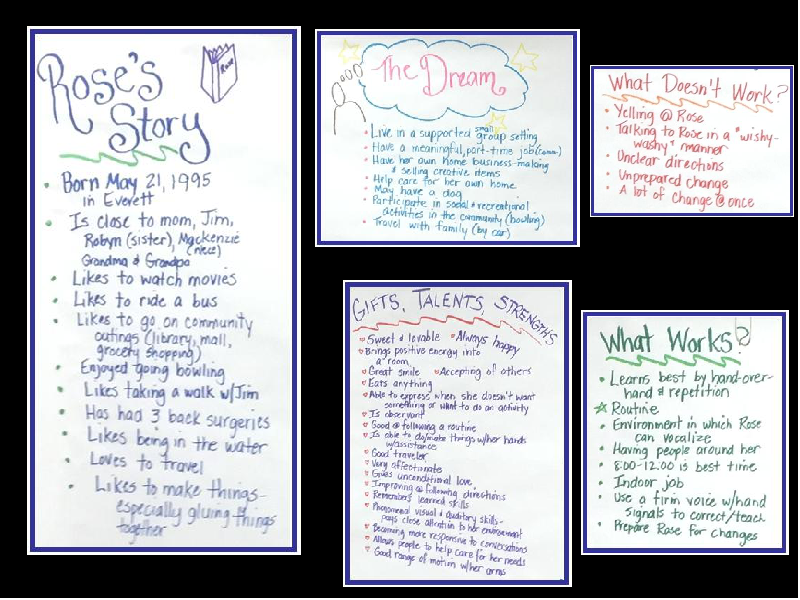 Rose's
Story
Rose
Born May 21, 1995
in Everett
Is close to mom, Jim,
Robyn (sister), Mackenzie
(niece)
Grandma & Grandpa
Likes to watch movies
Likes to ride a bus
Likes to go on community
outings (library, mall,
grocery shopping)
Enjoyed going bowling
Likes taking a walk w/Jim
Has had 3 back surgeries
Likes being in the water
Loves to travel
Likes to make things-
especially gluing things
together
The Dream
Live in a supported small group setting
Have a meaningful, part-time job
Have her own home business-making
& selling creative items
Help care for her own home
May have a dog
Participate in social & recreational
activities in the community (bowling)
Travel with family (by car)
What Doesn't Work?
Yelling @ Rose
Talking to Rose in a "wishy-
washy" manner
Unclear directions
Unprepared change
A lot of change @ once
Gifts, Talents, Strengths
Sweet & lovable Always happy
Brings positive energy into
a room
Great smile Accepting of others
Eats anything
Able to express when she doesn't want
something or want to do an activity
Is observant
Good @ following a routine
Is able to do/make things w/her hands
w/assistance
Good traveler
Very affectionate
Gives unconditional love
Improving @ following directions
Remembers learned skills
Phenomenal visual & auditory skills-
pays close attention to her environment
Becoming more responsive to conversations
Allows people to help care for her needs
Good range of motion w/her arms
What Works?
Learns best by hand-over-
hand & repetition
Routine
Environment in which Rose
can vocalize
Having people around her
8:00-12:00 is best time
Indoor job
Use a firm voice w/hand
signals to correct/teach
Prepare Rose for changes